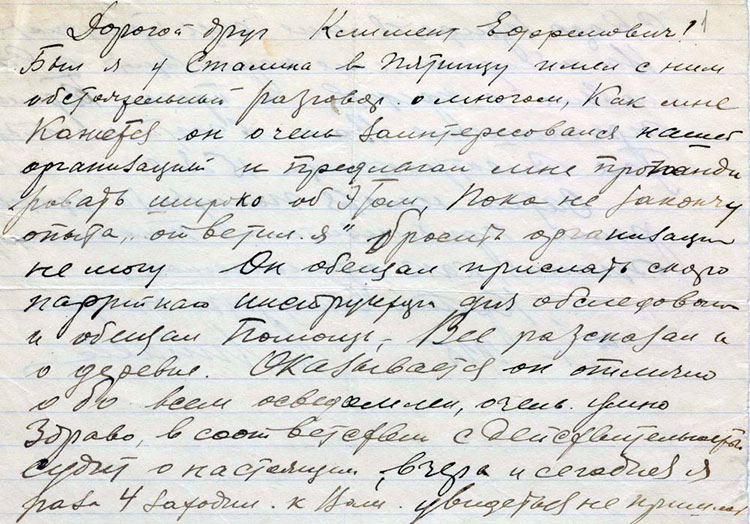 Дорогой друг Климент Ефремович! 1
Был я у Сталина в пятницу имел с ним
обстоятельный разговор. о многом, Как мне
Кажется он очень заинтересовался нашей
организацией и предлагал мне пропаганди
ровать широко об этом, Пока не закончу
опыта, ответил я" бросить организации
не могу Он обещал прислать скоро
инструктора для обследования
и обещал Помощь, - Все рассказал и
о деревне. Оказывается он отлично
обо всем осведомлен, очень умно
Здраво, в соответствии с Действительностью
судит о настоящем, вчера и сегодня я
раза 4 заходил. к Вам. увидеться не пришлось